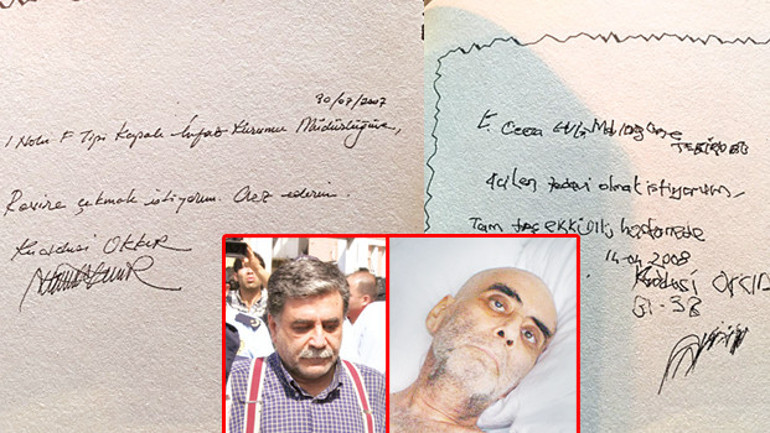 30/07/2007
1 Nolu F Tipi Kapalı İnfaz Kurumu Müdürlüğüne,
Revire çıkmak istiyorum. Arz ederim.
Kuddusi OKKIR
Ceza
TEKİRDAĞ
Acilen tedavi olmak istiyorum,
Tam teşekküllü hastanede
14-04-2008
Kuddusi